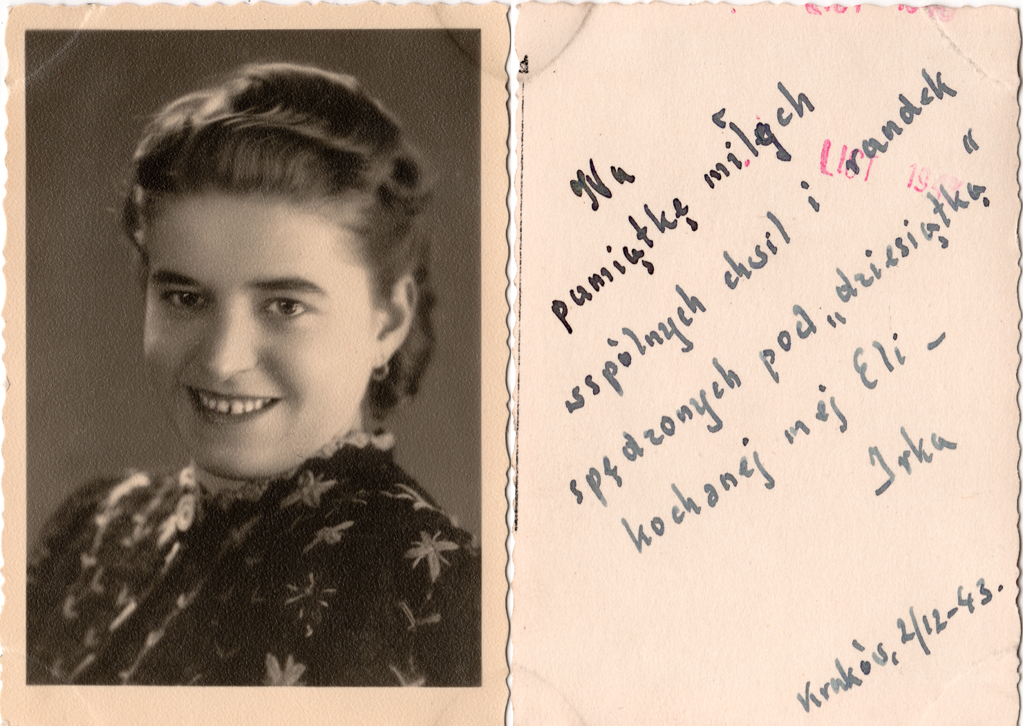 LIST 194
Na
pamiątkę miłych
wspólnych chwil i randek
spędzonych pod „dziesiątką"
kochanej mej Eli –
Irka
Kraków, 2/12–43.